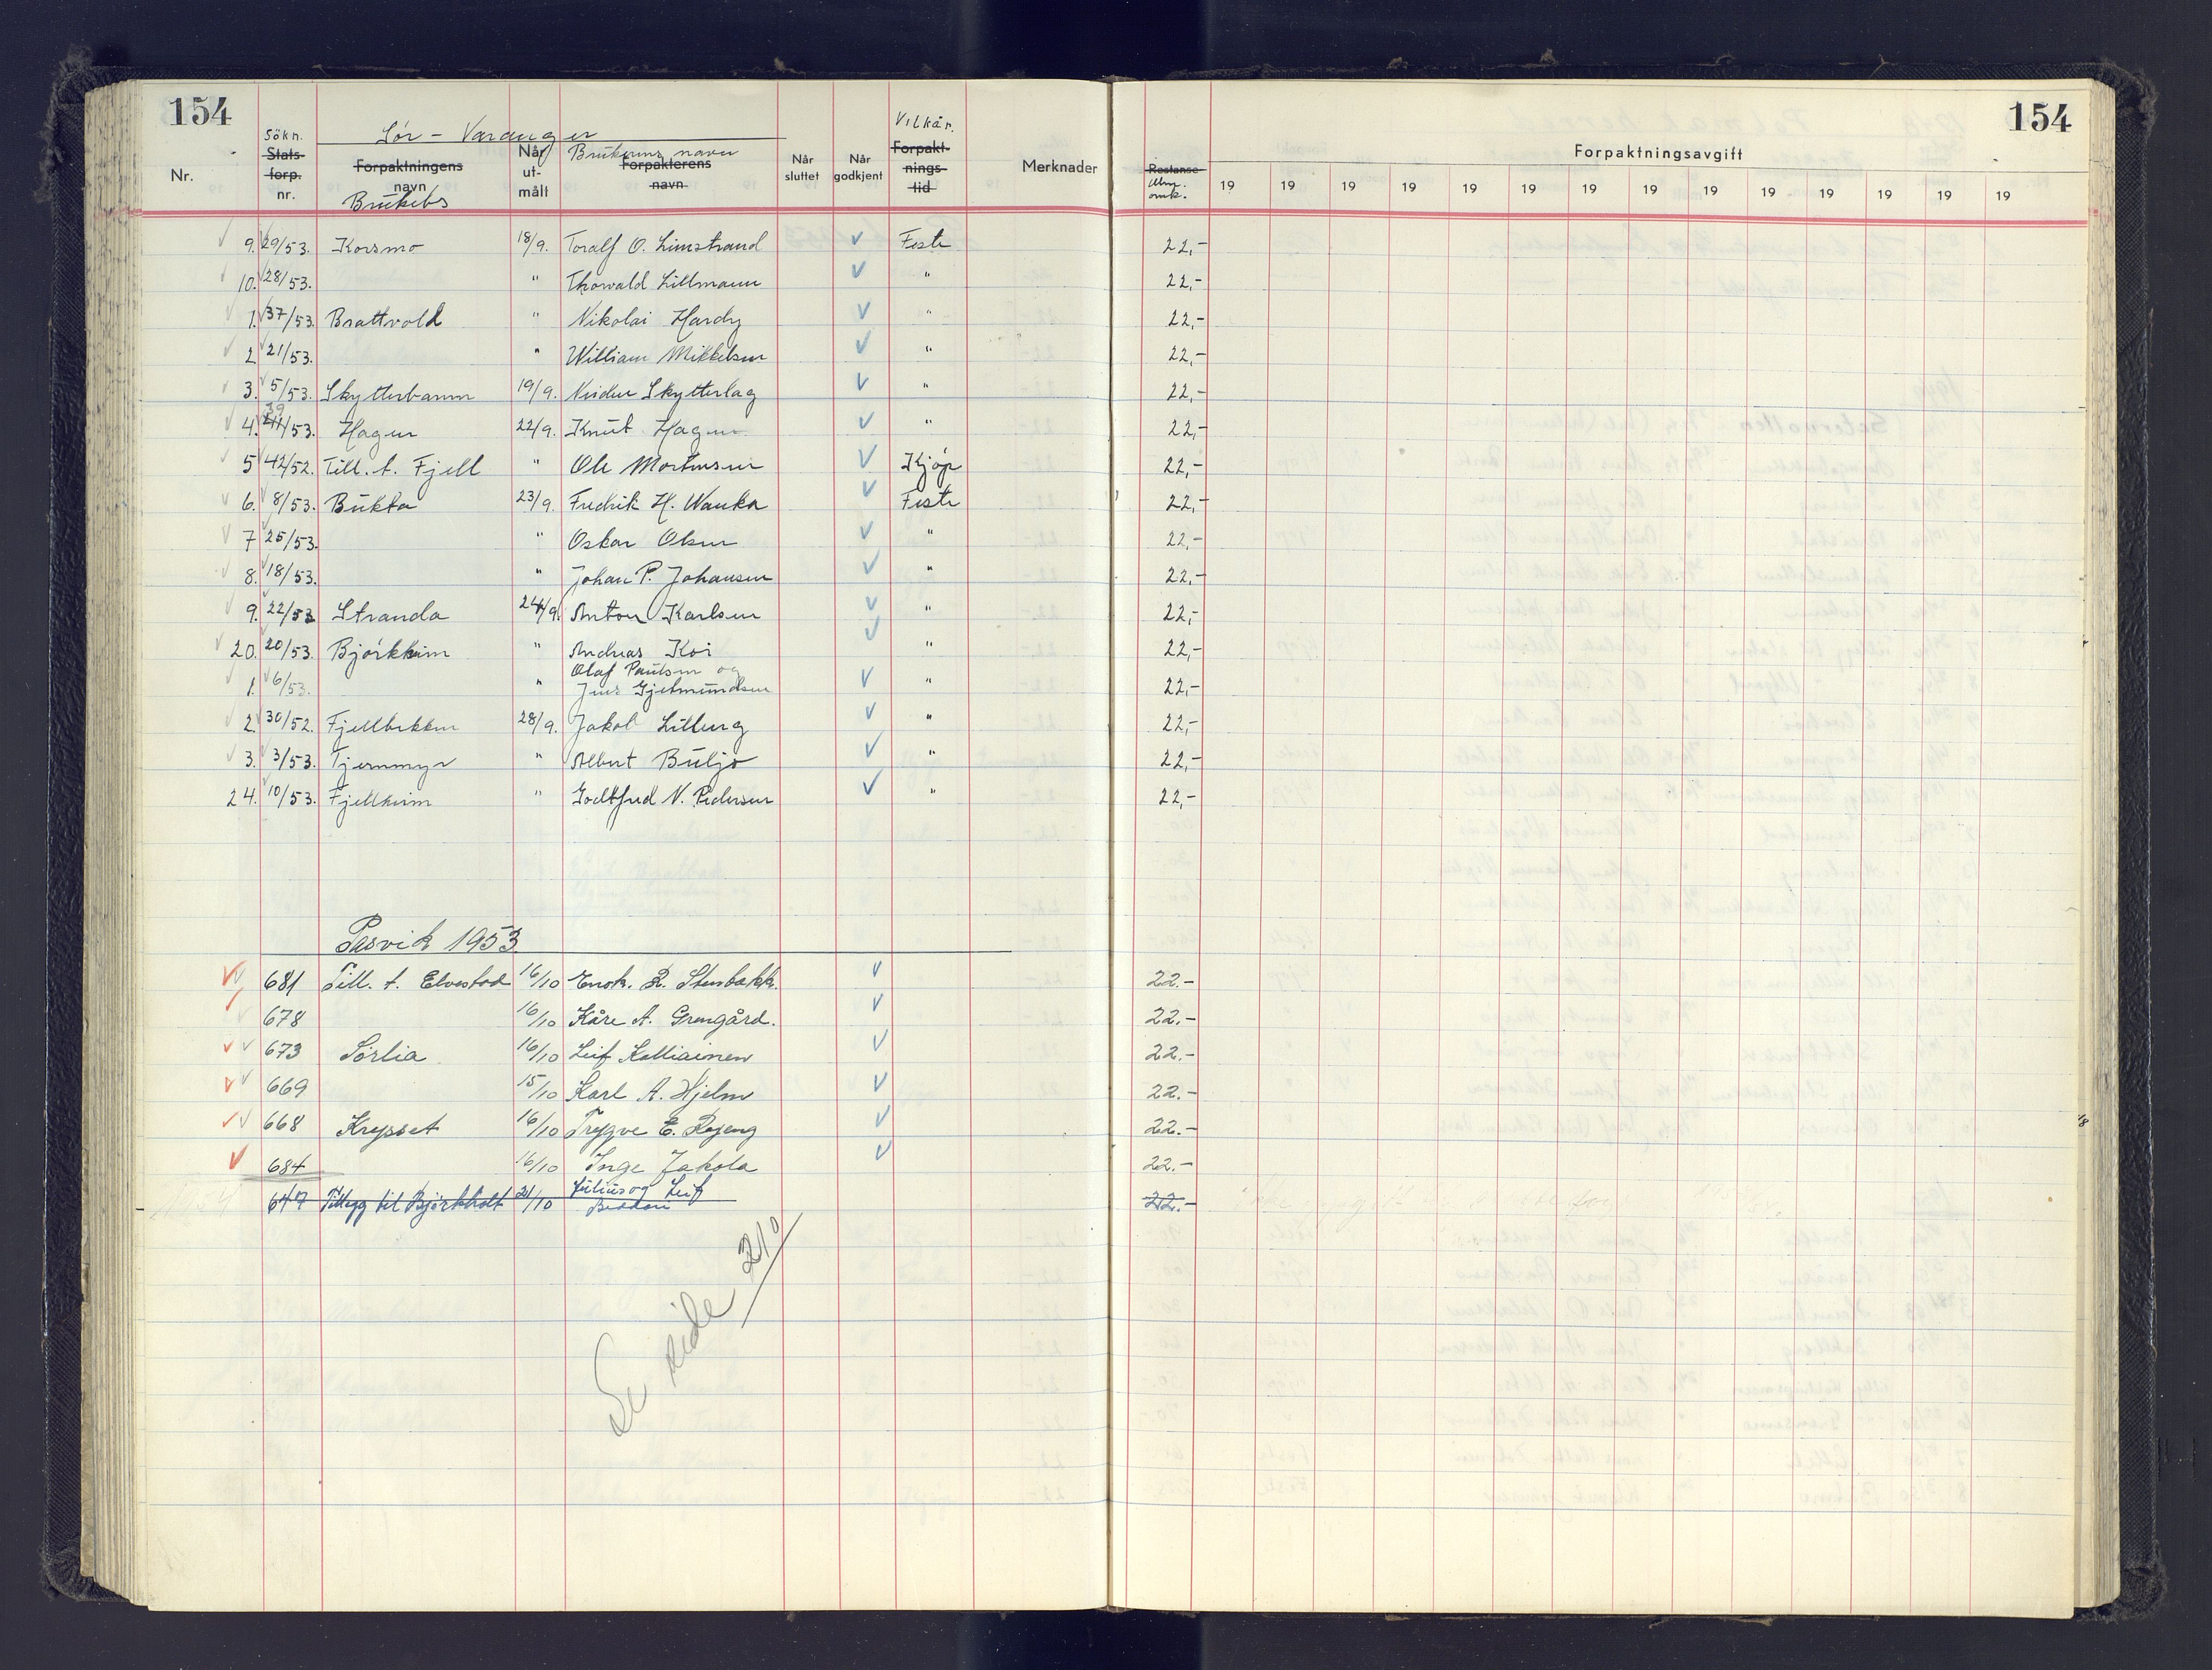 154
154
Sør - Varanger
Nr.
Søkn.
Stats-
forp.
nr.
Forpaktningens
navn
Brukets
Når
ut-
målt
Brukerens navn
Forpakterens
navn
Når
sluttet
Når
godkjent
Vilkår.
Forpakt-
nings-
tid
Merknader
Restanse
omk.
Forpaktningsavgift
19 19 19 19 19 19 19 19 19 19 19 19 19 19
9. 29/53. Korsmo 18/9. Toralf O. Limstrand Feste 22,-
10. 28/53. " Thorvald Lillmann " 22,-
1. 37/53. Brattvold " Nikolai Hardy " 22,-
2. 21/53. " William Mikkelsen " 22,-
3. 5/53. Skytterbanen 19/9. Neiden Skytterlag " 22,-
4. 39/53. Hagen 22/9. Knut Hagen " 22,-
5 42/52. Till. t. Fjell " Ole Mortensen Kjøp 22,-
6. 8/53. Bukta 23/9. Fredrik H. Wauka Feste 22,-
7 25/53. " Oskar Olsen " 22,-
8. 18/53. " Johan P. Johansen " 22,-
9. 22/53 Stranda 24/9. Anton Karlsen " 22,-
20. 20/53. Bjørkheim " Andreas Koi " 22,-
1. 6/53. " Olaf Paulsen og
Jens Gjetmundsen " 22,-
2. 30/52. Fjellbekken 28/9. Jakob Lilleng " 22,-
3. 3/53. Tjernmyr " Albert Buljo " 22,-
24. 10/53. Fjellheim " Godtfred N. Pedersen " 22,-
Pasvik 1953
681 Till. t. Elvestad 16/10 Enok. R. Stenbakk. 22.-
678 16/10 Kåre A. Grengård. 22.-
673 Sørlia 16/10 Leif Kalliainen 22.-
669 15/10 Karl A. Hjelm 22.-
668 Krysset 16/10 Trygve E. Røjeng 22.-
684 16/10 Inge Jakola 22.-
647 Tillegg til Bjørkholt 21/10 Julius og Leif
Beddari 22.-
Se side 210